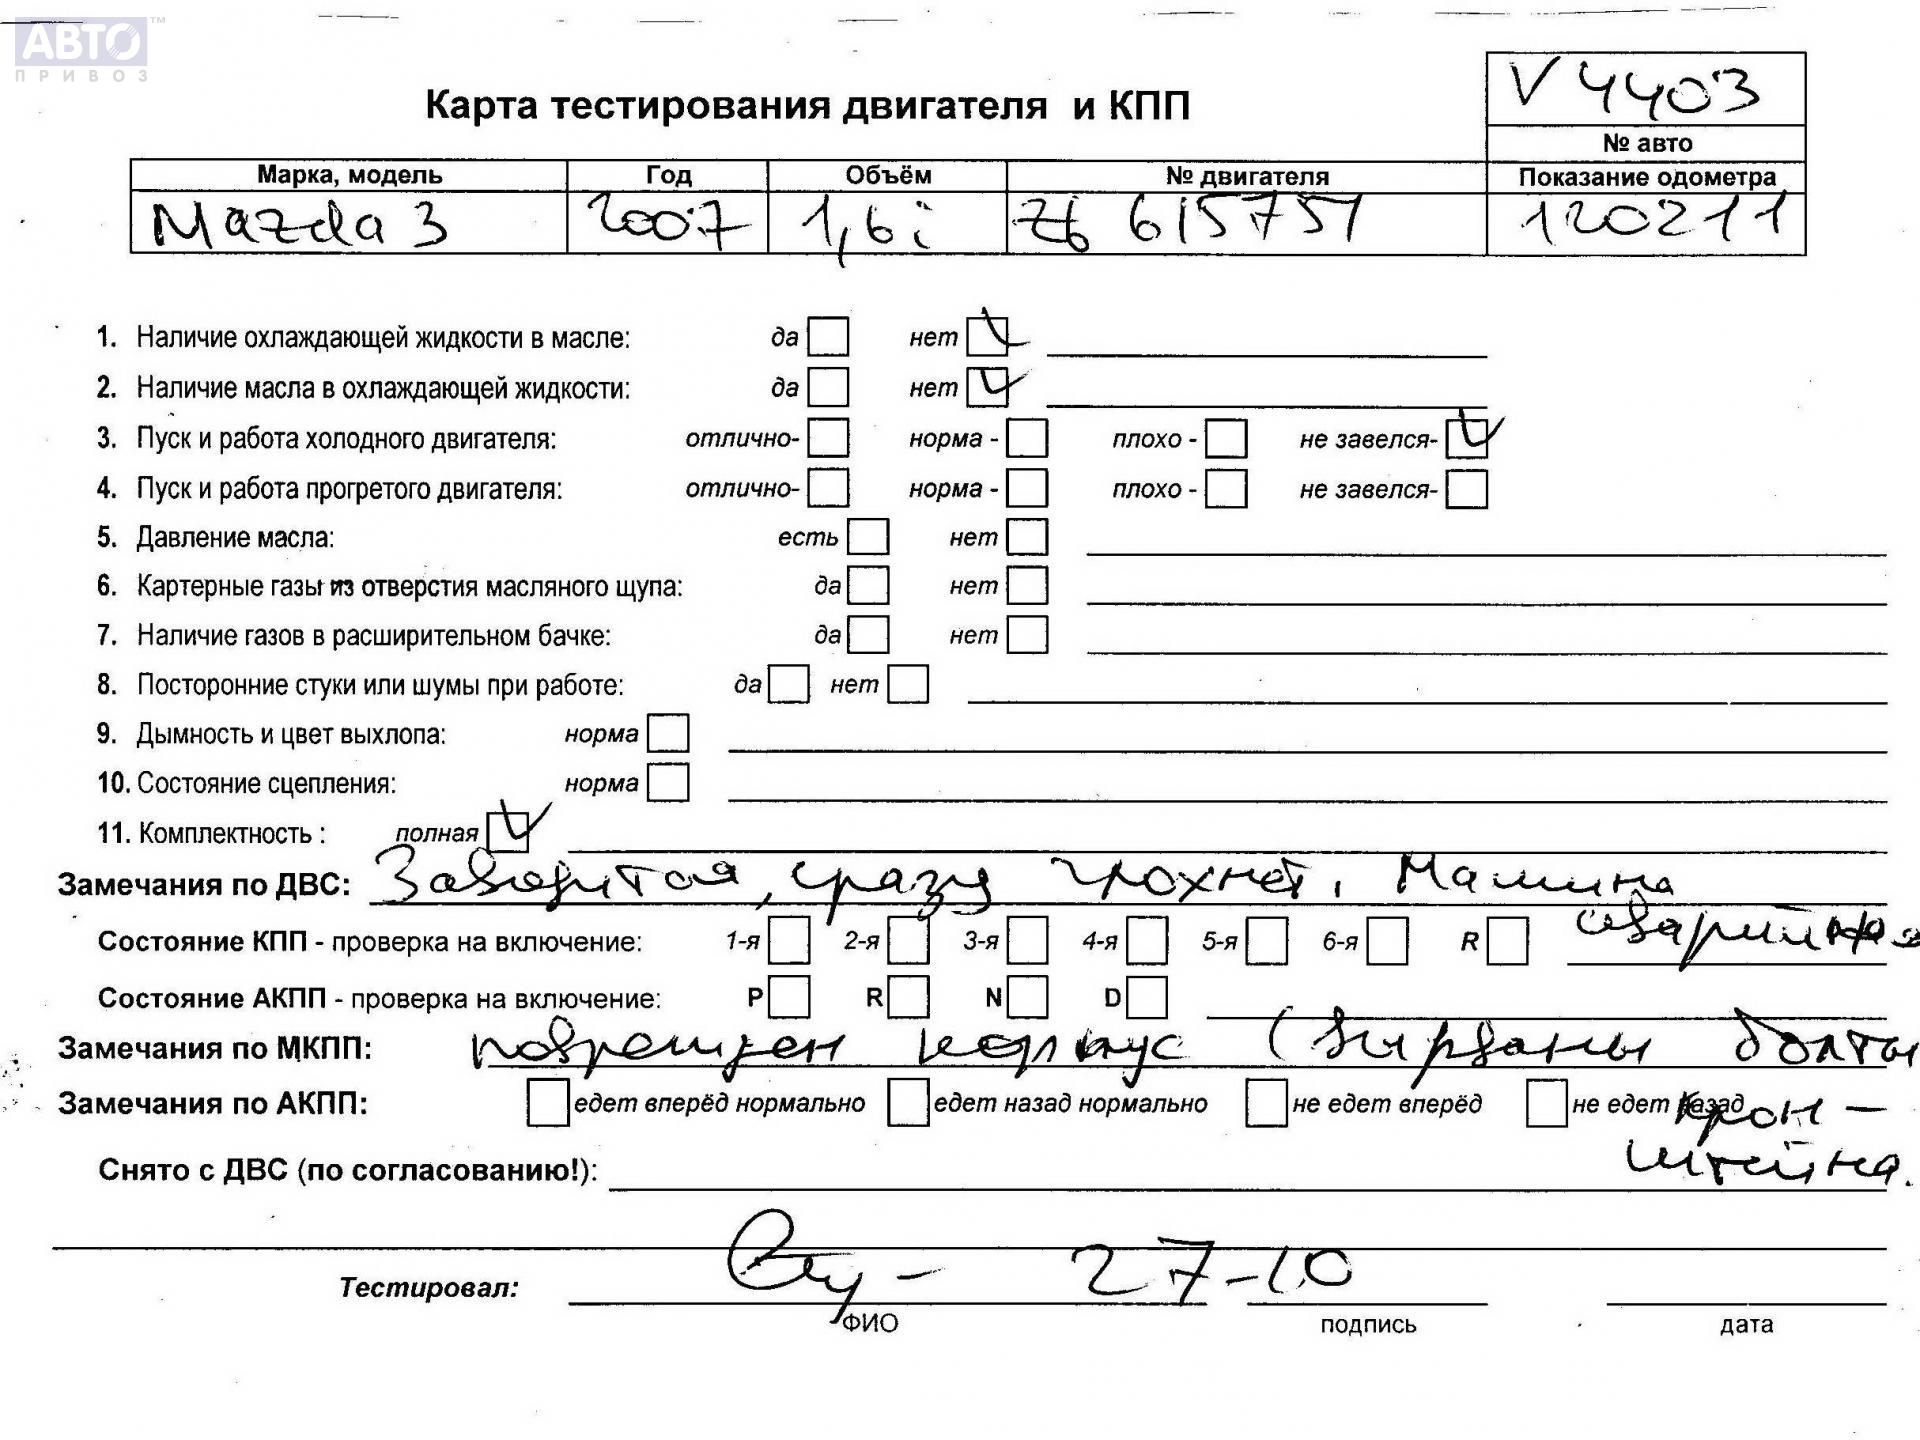 АВТО™
ПРИВОЗ
V 4403
Карта тестирования двигателя и КПП
№ авто
Марка, модель Год Объём № двигателя Показание одометра
Mazda 3 2007 1,6 i Z6 615751 120211
1. Наличие охлаждающей жидкости в масле: да нет
2. Наличие масла в охлаждающей жидкости: да нет
3. Пуск и работа холодного двигателя: отлично- норма - плохо - не завелся-
4. Пуск и работа прогретого двигателя: отлично- норма - плохо - не завелся-
5. Давление масла: есть нет
6. Картерные газы из отверстия масляного щупа: да нет
7. Наличие газов в расширительном бачке: да нет
8. Посторонние стуки или шумы при работе: да нет
9. Дымность и цвет выхлопа: норма
10. Состояние сцепления: норма
11. Комплектность : полная
Замечания по ДВС: Заводится, сразу глохнет. Машина
аварийная
Состояние КПП - проверка на включение: 1-я 2-я 3-я 4-я 5-я 6-я R
Состояние АКПП - проверка на включение: P R N D
Замечания по МКПП: поврежден корпус (вырваны болты
Замечания по АКПП: едет вперёд нормально едет назад нормально не едет вперёд не едет назад
крон-
штейна.
Снято с ДВС (по согласованию!):
Тестировал: 27-10
ФИО подпись дата